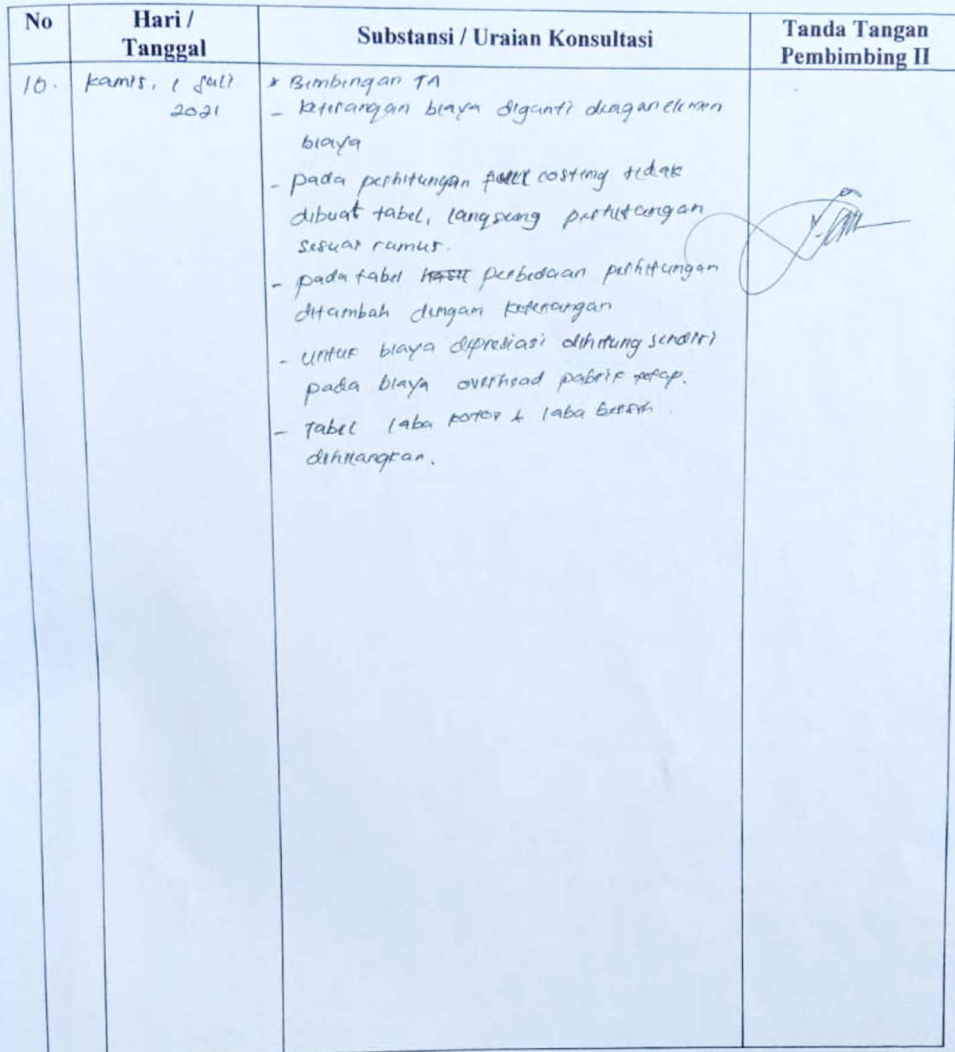 No
Hari /
Tanggal
Substansi / Uraian Konsultasi
Tanda Tangan
Pembimbing II
10.
Kamis, 1 Juli
2021
* Bimbingan TA
- Keterangan biaya diganti dengan elemen
biaya
- pada perhitungan full costing tidak
dibuat tabel, langsung perhitungan
sesuai rumus.
- pada tabel hasil perbedaan perhitungan
ditambah dengan keterangan
- untuk biaya depresiasi dihitung sendiri
pada biaya overhead pabrik tetap.
- Tabel laba kotor & laba bersih
dihilangkan.